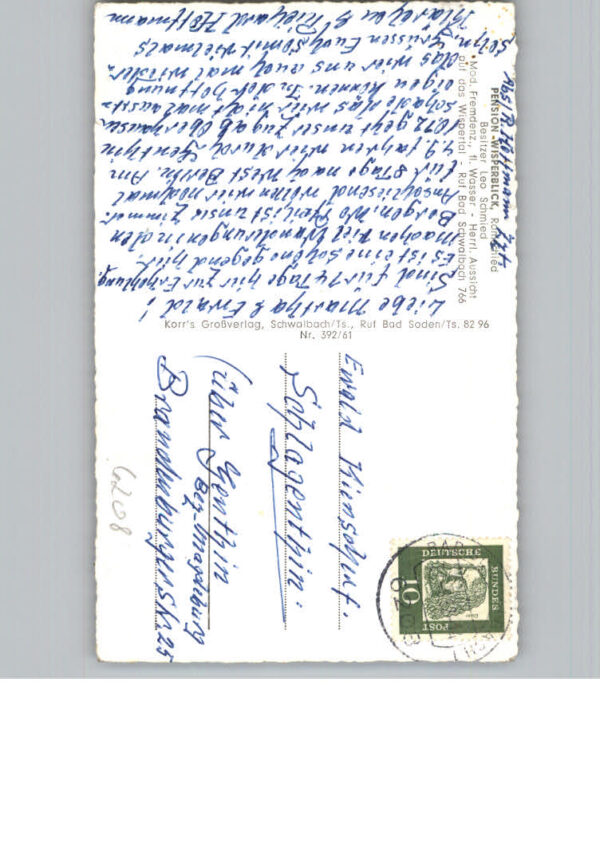 Abs. R. Hoffmann z.Zt.
PENSION „WISPERBLICK", Ramschied
Besitzer Leo Schmied
• Mod. Fremdenz., fl. Wasser - Herrl. Aussicht
auf das Wispertal - Ruf Bad Schwalbach 766
Liebe Martha & Ewald!
Sind für 14 Tage hir zur Erholung.
Es ist eine schöne gegend hir.
Machen viel Wanderungen in den
Bergen, Wo Pfeil ist unser Zimmer.
Anschliesend wollen wir nochmal
für 8 Tage nach West Berlin. Am
4.9 fahren wir durch Genthin
1072 geht unser Zug ab Oberhausen
schade das wir nicht mal ausst-
eigen können. In der Hoffnung
das wir uns auch mal wieder-
sehn, Grüssen Euch somit vielmals
Marichen & Richard Hoffmann
Korr's Großverlag, Schwalbach/Ts., Ruf Bad Soden/Ts. 82 96
Nr. 392/61
DEUTSCHE
BUNDES
POST
10
Ewald
Schlagenthin.
über Genthin
Bez. Magdeburg
Brandenburgerstr. 25
6208